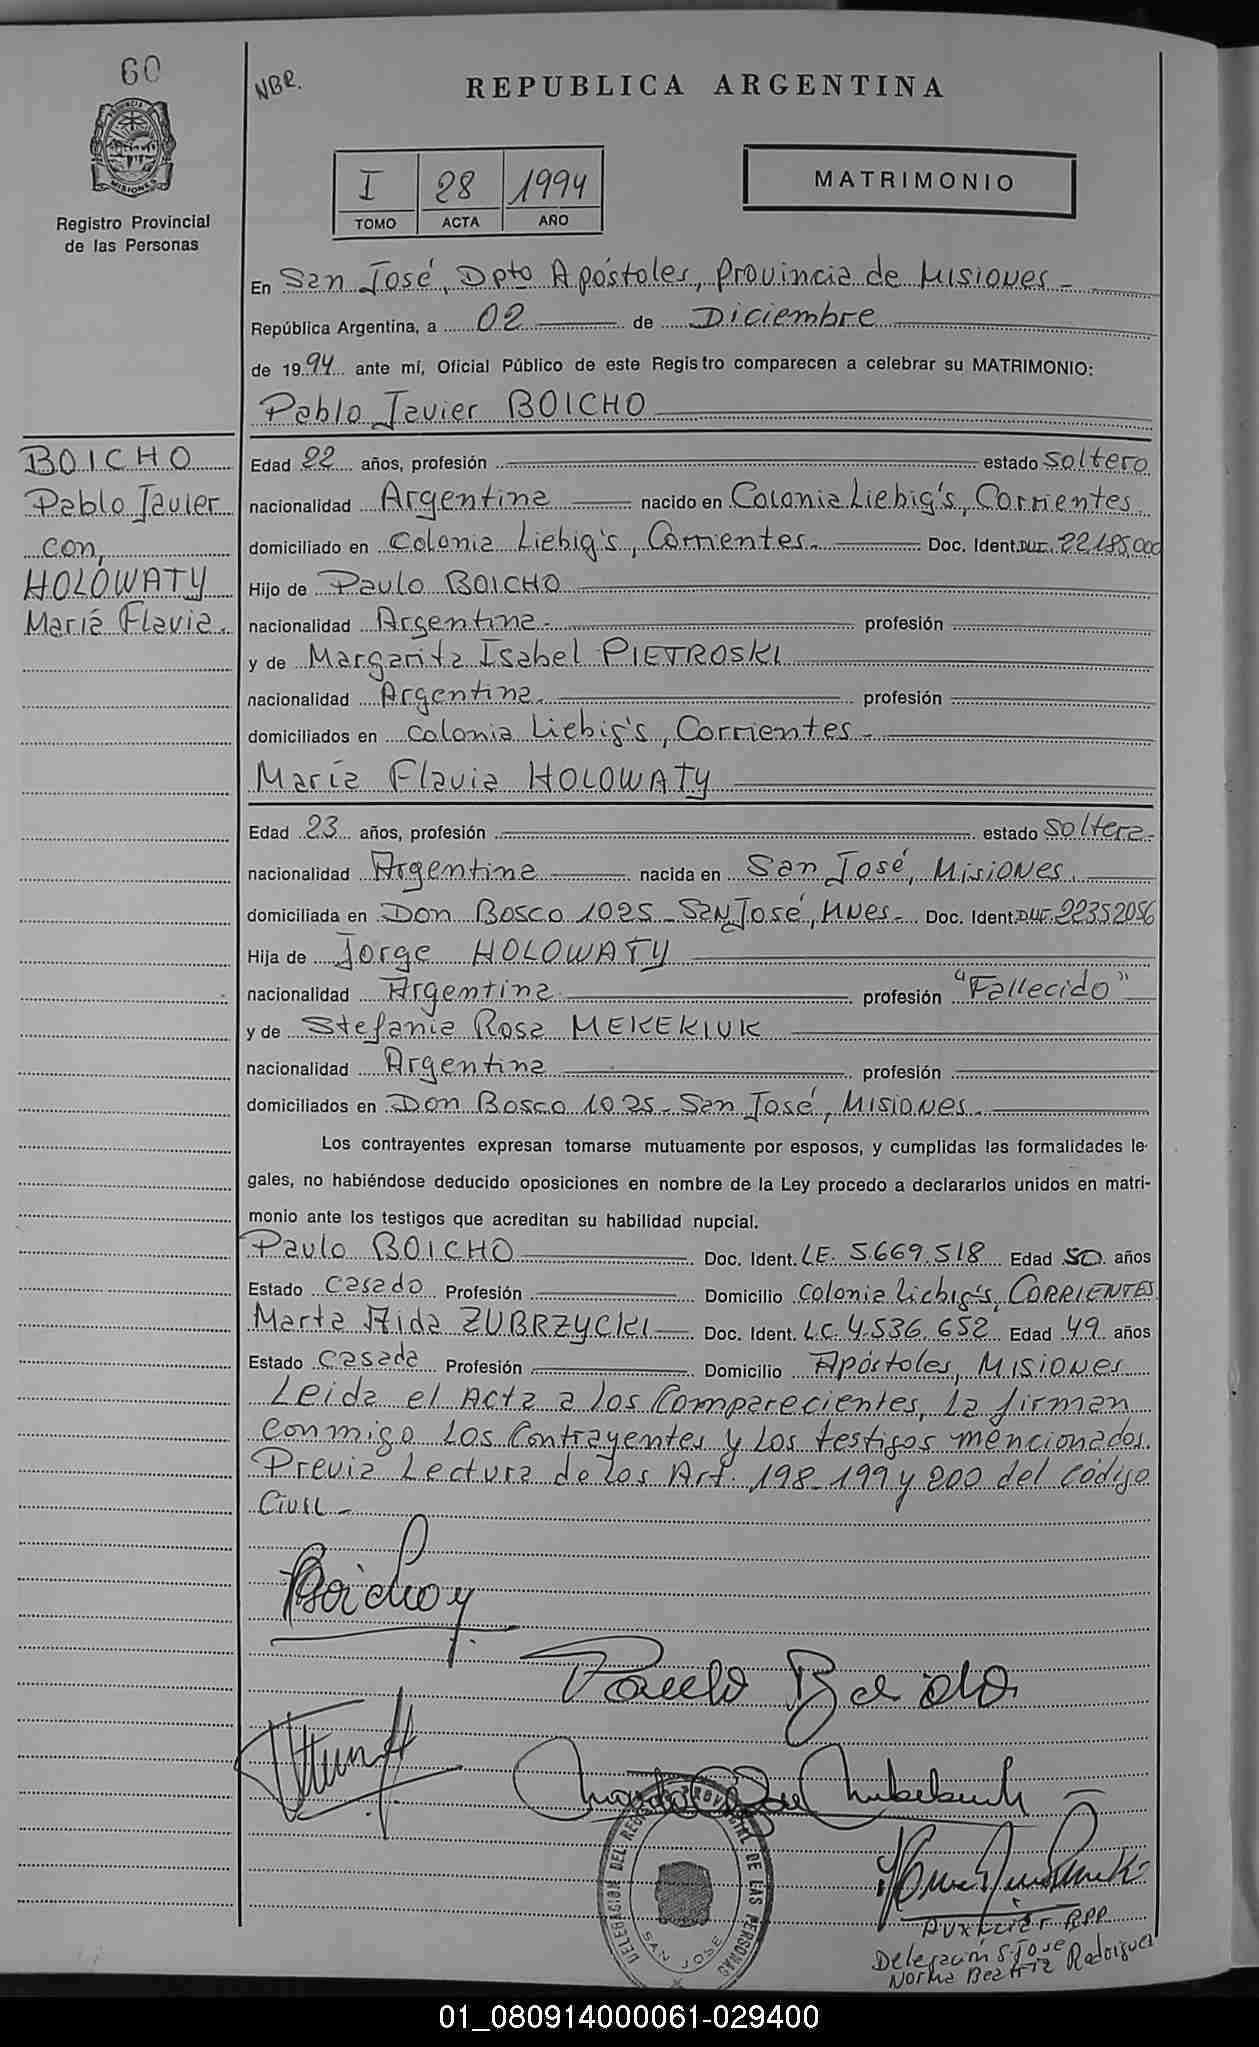 60
NBR.
REPUBLICA ARGENTINA
MISIONES
Registro Provincial
de las Personas
I 28 1994
TOMO ACTA AÑO
MATRIMONIO
En San José, Dpto Apóstoles, Provincia de Misiones -
República Argentina, a 02 de Diciembre
de 1994 ante mí, Oficial Público de este Registro comparecen a celebrar su MATRIMONIO:
Pablo Javier BOICHO
BOICHO
Pablo Javier
con,
HOLOWATY
María Flavia.
Edad 22 años, profesión estado Soltero
nacionalidad Argentina nacido en Colonia Liebig's, Corrientes.
domiciliado en Colonia Liebig's, Corrientes.- Doc. Ident. DNI. 22.185.000
Hijo de Paulo BOICHO
nacionalidad Argentina.- profesión
y de Margarita Isabel PIETROSKI
nacionalidad Argentina. profesión
domiciliados en Colonia Liebig's, Corrientes -
María Flavia HOLOWATY
Edad 23 años, profesión estado Soltera.
nacionalidad Argentina nacida en San José, Misiones.
domiciliada en Don Bosco 1025 - San José, Mnes.- Doc. Ident. DNI. 22352056
Hija de Jorge HOLOWATY
nacionalidad Argentina profesión "Fallecido"
y de Stefania Rosa MEKEKIUK
nacionalidad Argentina profesión
domiciliados en Don Bosco 1025 - San José, Misiones.
Los contrayentes expresan tomarse mutuamente por esposos, y cumplidas las formalidades le-
gales, no habiéndose deducido oposiciones en nombre de la Ley procedo a declararlos unidos en matri-
monio ante los testigos que acreditan su habilidad nupcial.
Paulo BOICHO Doc. Ident. LE. 5.669.518 Edad 50 años
Estado Casado Profesión Domicilio Colonia Liebig's, CORRIENTES
Marta Aida ZUBRZYCKI Doc. Ident. L.C. 4.536.652 Edad 49 años
Estado Casada Profesión Domicilio Apóstoles, Misiones
Leida el Acta a los Comparecientes, la firman
conmigo los Contrayentes y los testigos mencionados.
Previa Lectura de los Art. 198-199 y 200 del Código
Civil -
Boicho
Paulo Boicho
DELEGACION DEL REGISTRO PROVINCIAL DE LAS PERSONAS
SAN JOSE
Auxiliar RPP
Delegación S José
Norma Beatriz Rodriguez
01_080914000061-029400